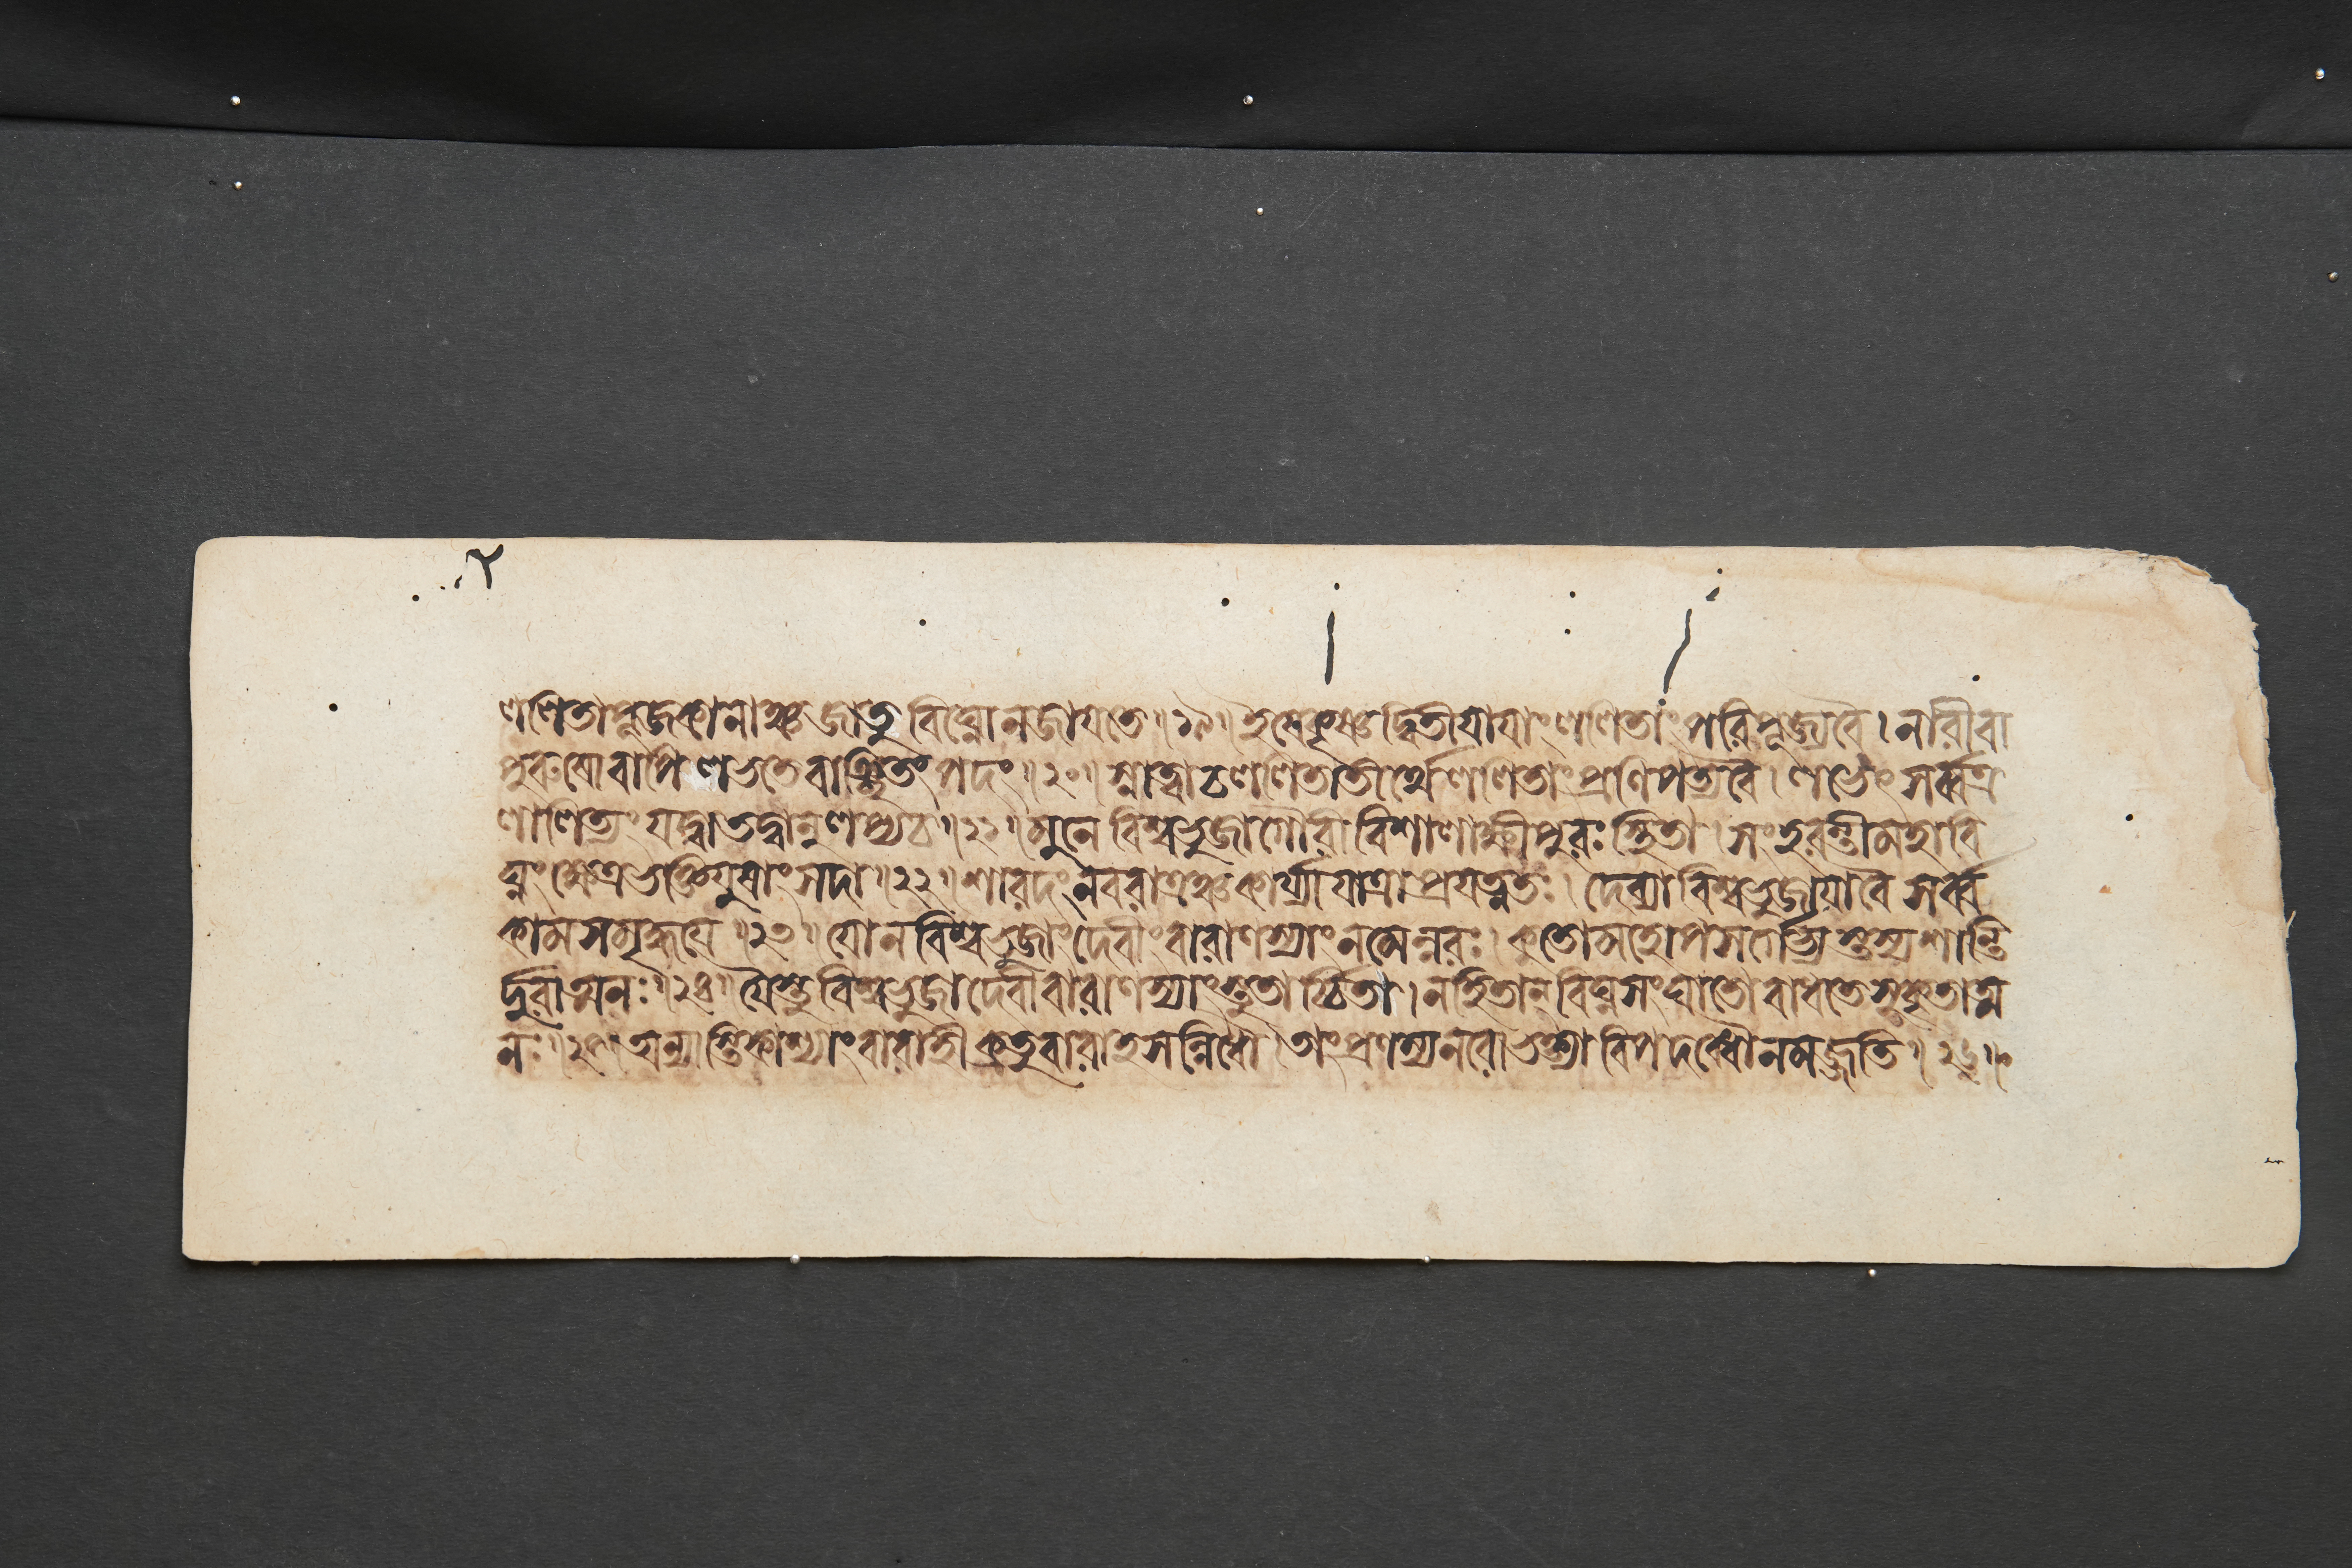 ললিতাপূজকানাঞ্চ জাতু বিঘ্নো ন জায়তে ॥ ১৯ ॥ ইষে কৃষ্ণদ্বিতীয়ায়াং ললিতাং পরিপূজ্য বৈ । নারী বা
পুরুষো বাপি লভতে বাঞ্ছিতং পদং ॥ ২০ ॥ স্নাত্বা চ ললিতাতীর্থে ললিতাং প্রণিপত্য বৈ । লভেৎ সর্ব্বত্র
লালিত্যং যদ্বা তদ্বানুলপ্য চ ॥ ২১ ॥ মুনে বিশ্বভুজা গৌরী বিশালাক্ষী পুরঃ স্থিতা । সংহরন্তী মহাবি
ঘ্নং ক্ষেত্রভক্তিযুষাং সদা ॥ ২২ ॥ শারদং নবরাত্রঞ্চ কার্য্যা যাত্রা প্রযত্নতঃ । দেব্যা বিশ্বভুজায়া বৈ সর্ব্ব
কামসমৃদ্ধয়ে ॥ ২৩ ॥ যো ন বিশ্বভুজাং দেবীং বারাণস্যাং নমেন্নরঃ । কুতো মহোপসর্গেভ্যস্তস্য শান্তি
র্দুরাত্মনঃ ॥ ২৪ ॥ যৈস্তু বিশ্বভুজা দেবী বারাণস্যাং স্তুতার্চিতা । ন হি তান্ বিঘ্নসংঘাতো বাধতে সুকৃতাত্ম
নঃ ॥ ২৫ ॥ অন্যাস্তি কাশ্যাং বারাহী ক্রতুবারাহসন্নিধৌ । তাং প্রণম্য নরো ভক্ত্যা বিপদব্ধৌ ন মজ্জতি ॥ ২৬ ॥